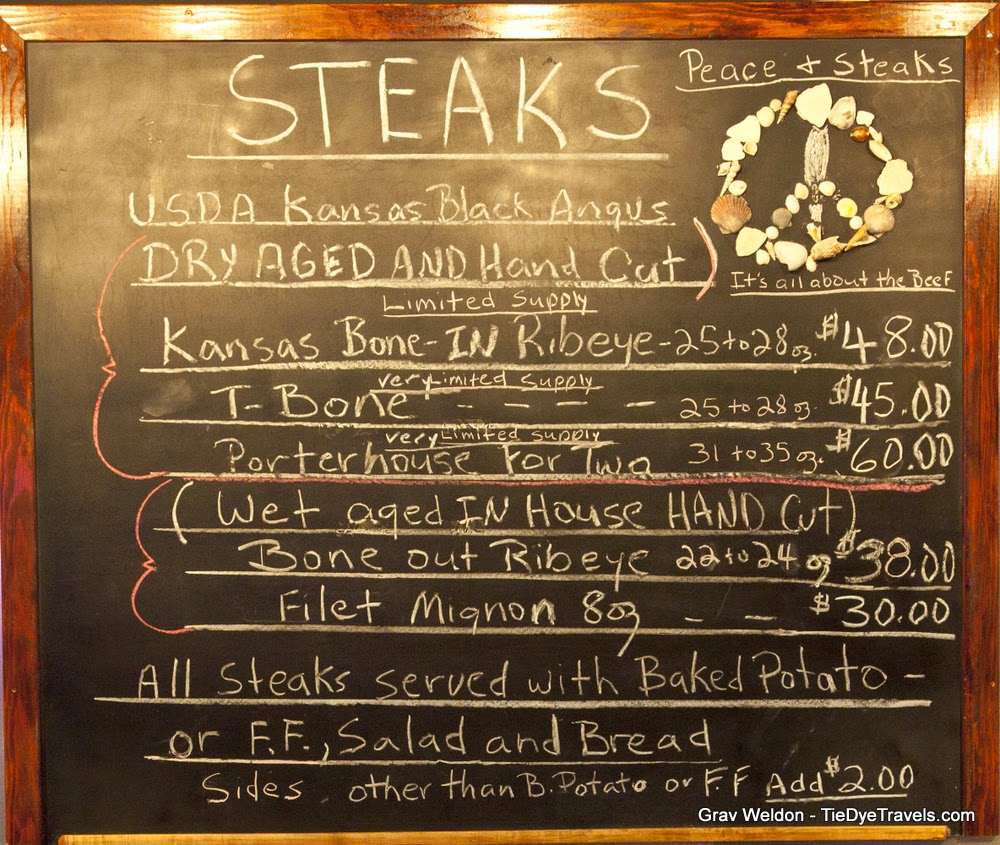 STEAKS
Peace & Steaks
It's all about the Beef
USDA Kansas Black Angus
DRY AGED AND Hand Cut)
Limited Supply
Kansas Bone-IN Ribeye - 25 to 28 oz $48.00
very Limited Supply
T-Bone - - - - 25 to 28 oz. $45.00
very Limited Supply
Porterhouse For Two 31 to 35 oz. $60.00
(Wet aged IN House HAND Cut)
Bone out Ribeye 22 to 24 oz $38.00
Filet Mignon 8oz - - $30.00
All Steaks served with Baked Potato -
or F.F., Salad and Bread
Sides other than B. Potato or F.F Add $2.00
Grav Weldon - TieDyeTravels.com